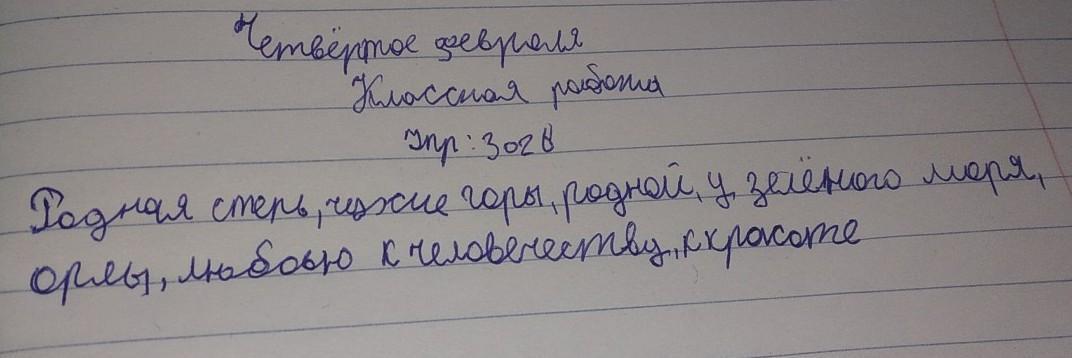 Четвёртое февраля
Классная работа
Упр: 302 в
Родная степь, чужие горы, родной, у зелёного моря,
орлы, любовью к человечеству, к красоте